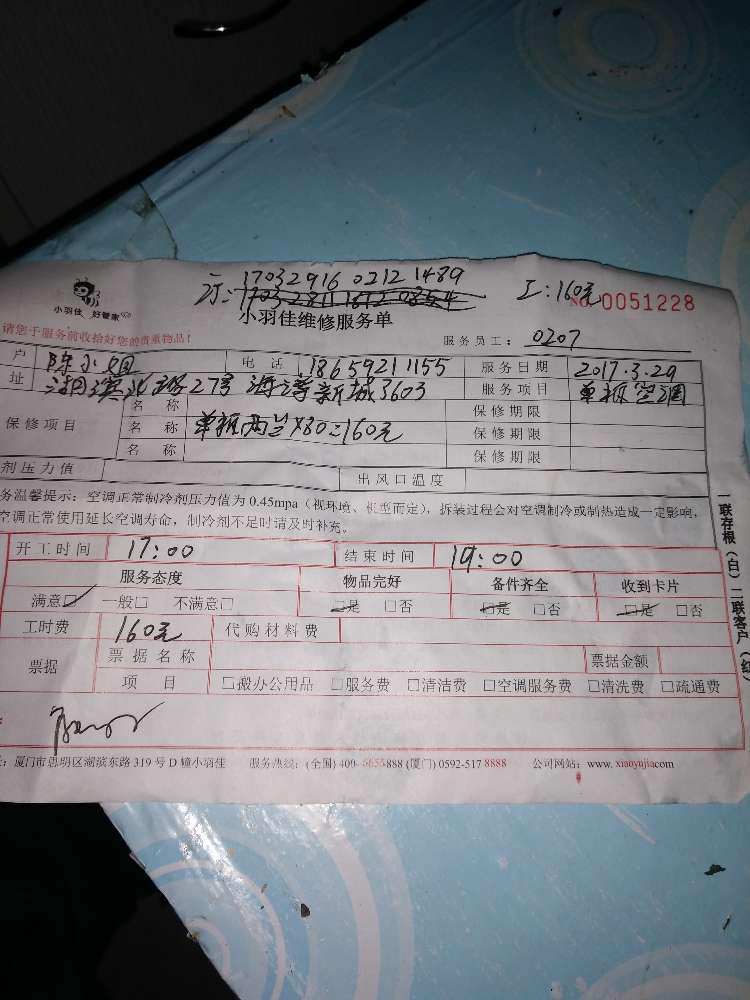 订：17032916 0212 1489
工：160元
小羽佳 好管家
No 0051228
小羽佳维修服务单
请您于服务前收拾好您的贵重物品！
服务员工： 0207
户 陈小姐 电话 18659211155 服务日期 2017.3.29
址 湖滨北路27号海湾新城3603 服务项目 单拆空调
保修项目 名称 保修期限
名称 单拆两台X80=160元 保修期限
名称 保修期限
剂压力值 出风口温度
务温馨提示：空调正常制冷剂压力值为 0.45mpa（视环境、机型而定），拆装过程会对空调制冷或制热造成一定影响，
空调正常使用延长空调寿命，制冷剂不足时请及时补充。
开工时间 17:00 结束时间 19:00
服务态度 物品完好 备件齐全 收到卡片
满意☑ 一般□ 不满意□ □是 □否 □是 □否 □是 □否
工时费 160元 代购材料费
票据 票据名称 票据金额
项目 □搬办公用品 □服务费 □清洁费 □空调服务费 □清洗费 □疏通费
：厦门市思明区湖滨东路 319 号 D 幢小羽佳 服务热线：(全国) 400-6655888 (厦门) 0592-517 8888 公司网站：www. xiaoyujiacom
一联存根（白）二联客户（红）